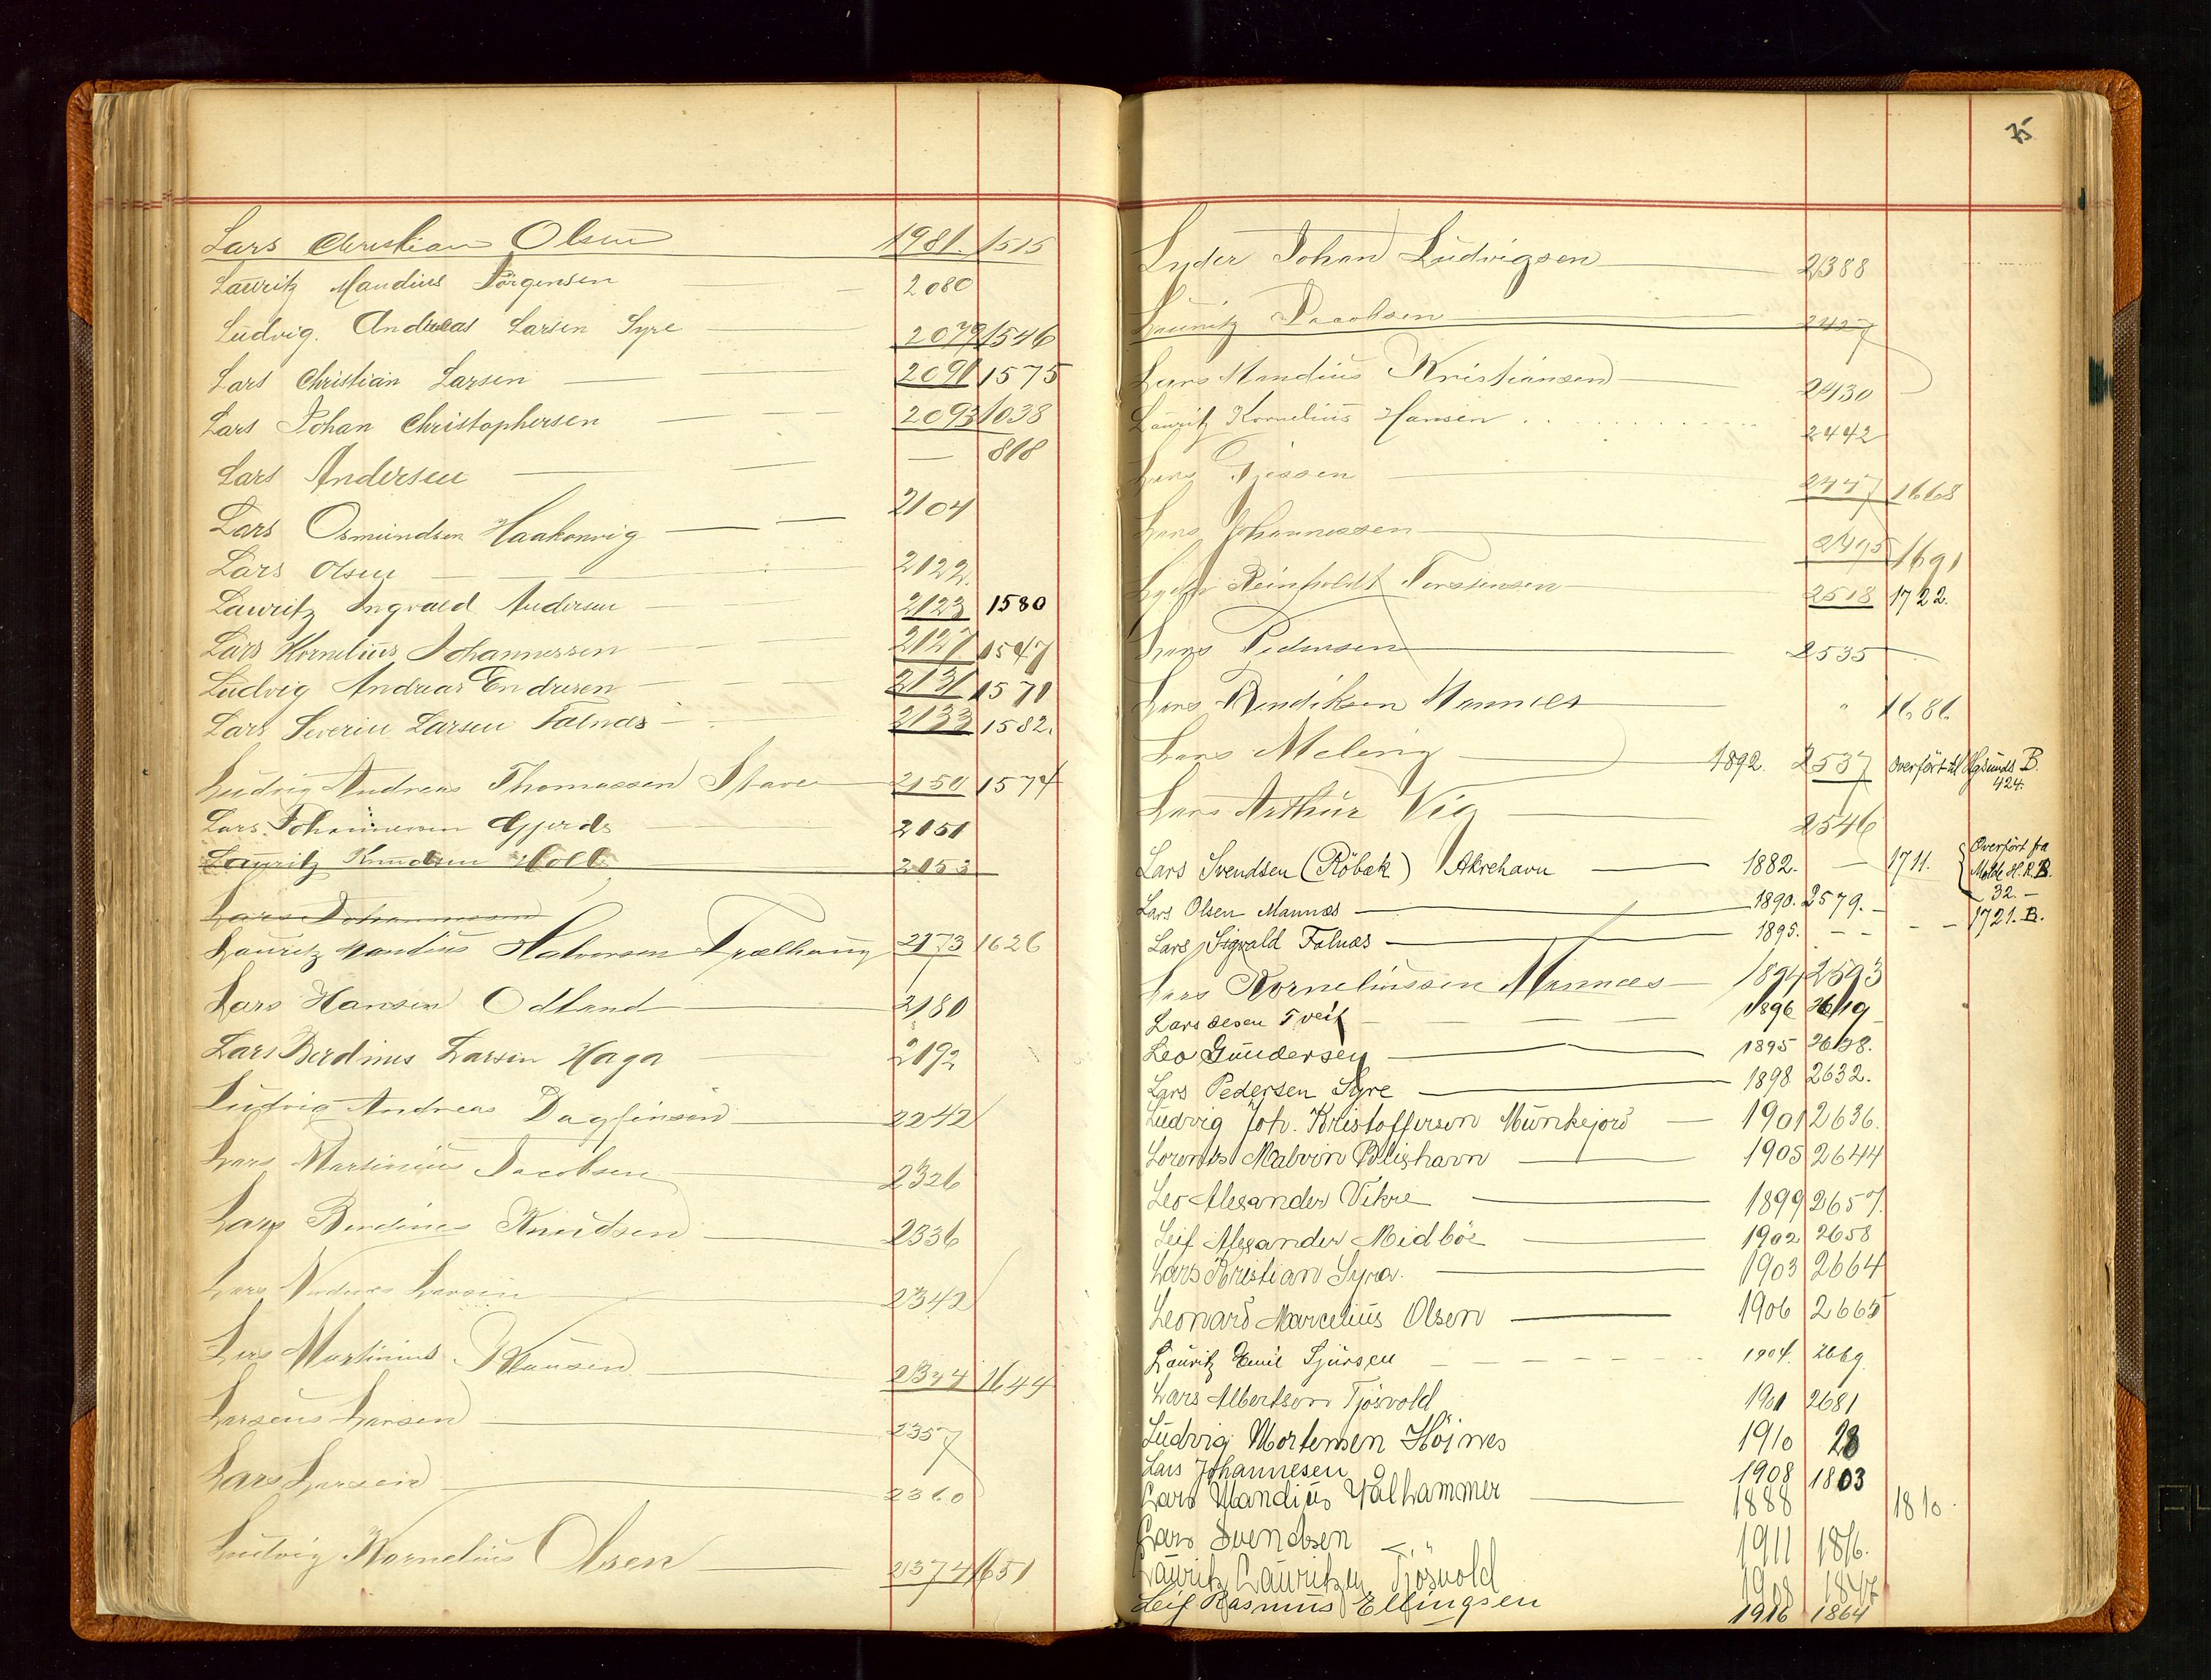 Lars Christian Olsen 1981. 1515
Lauritz Mandius Jörgensen 2080
Ludvig. Andreas Larsen Syre 2079 1546
Lars Christian Larsen 2091 1575
Lars Johan Christophersen 2093 1038
Lars Andersen — 818
Lars Osmundsen Haakonvig 2104
Lars Olsen 2122
Lauritz Ingvald Andersen 2123 1580
Lars Kornelius Johannessen 2127 1547
Ludvig Andreas Endresen 2131 1571
Lars Severin Larsen Falnæs 2133 1582.
Ludvig Andreas Thomassen Stave 2150 1574
Lars Johannessen Gjerde 2151
Lauritz Knudsen Holt 2153
Lars Johannessen
Lauritz Mandius Halvorsen Trælhaug 2173 1626
Lars Hansen Odland 2180
Lars Berdines Larsen Haga 2192
Ludvig Andreas Dagfinsen 2242
Lars Martinius Jacobsen 2326
Lars Berdines Knudsen 2336
Lars Larsen 2342
Lars Martinius Hansen 2344 1644
Larseus Larsen 2357
Lars Larsen 2360
Ludvig Kornelius Olsen 2374 1651
75
Lyder Johan Ludvigsen 2388
Lauritz Jacobsen 2427
Lars Mandius Kristiansen 2430
Lauritz Kornelius Hansen 2442
Lars 2447 1668
Lars Johannessen 2495 1691
Lyder Reinholdt Torstensen 2518 1722.
Lars Pedersen 2535
Lars Bendiksen Mannes " 1686
Lars Meling 1892. 2537 Overført til Hgsunds B.
424.
Lars Arthur Vig 2546
Lars Svendsen (Röbak) Akrehavn 1882. — 1711. Overført fra
Molde H. R. B.
32. —
Lars Olsen Mannæs 1890. 2579. —
Lars Sigvald Falnæs 1895. — — — 1721. B.
Lars Korneliussen Mannæs 1894 2593
Lars Olsen Tveit 1896 2619
Leo Gundersen 1895 2628.
Lars Pedersen Syre 1898 2632.
Ludvig Joh. Kristoffersen Munkejord 1901 2636.
Lorents Malvin Blishavn 1905 2644
Leo Alexander Vikre 1899 2657.
Leif Alexander Midböe 1902 2658
Lars Kristian Syre. 1903 2664
Leonard Marcelius Olsen 1906 2665
Lauritz Emil Sjursen 1904. 2669
Lars Albertsen Tjösvold 1901 2681
Ludvig Mortensen Höines 1910 28
Lars Johannesen 1908 1803
Lars Mandius Valhammer 1888 1810.
Lars Svendsen 1911 1816.
Lauritz Lauritzen Tjösvold 1908 1847
Leif Rasmus Ellingsen 1916 1864